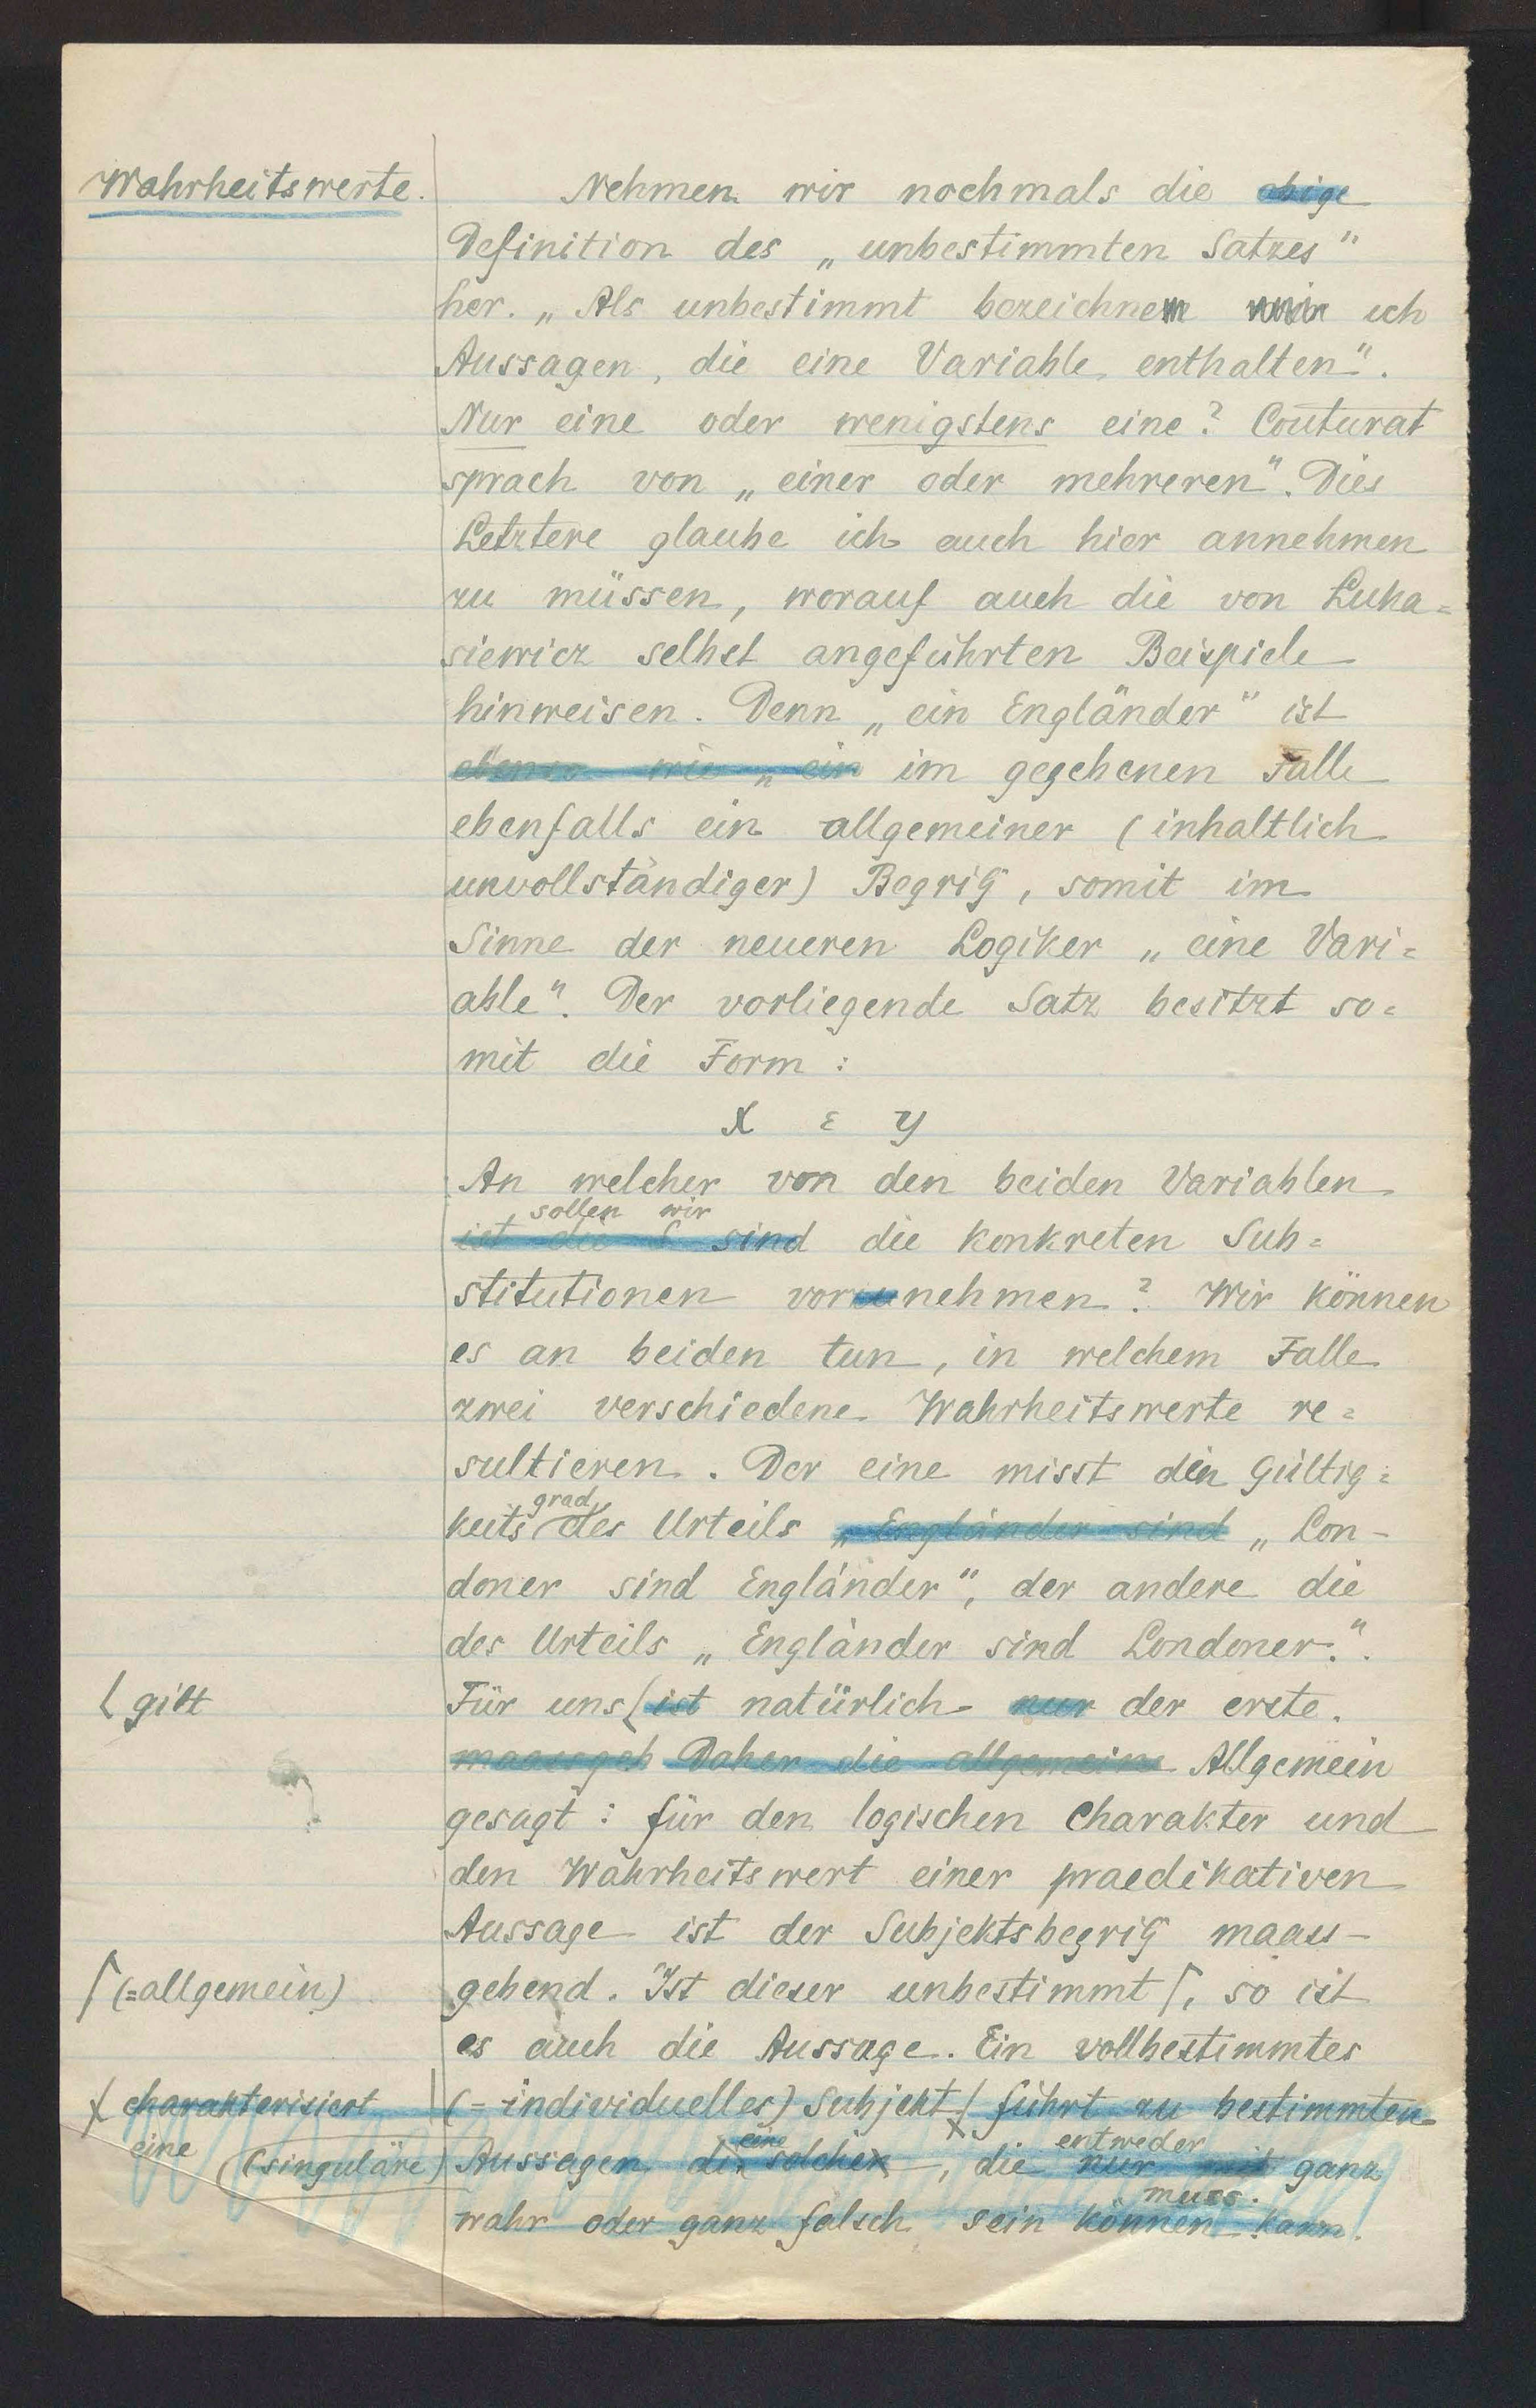 Wahrheitswerte.
Nehmen wir nochmals die obige
Definition des „unbestimmten Satzes"
her. „Als unbestimmt bezeichnen wir ich
Aussagen, die eine Variable enthalten".
Nur eine oder wenigstens eine? Couturat
sprach von „einer oder mehreren". Dies
Letztere glaube ich auch hier annehmen
zu müssen, worauf auch die von Luka=
siewicz selbst angeführten Beispiele
hinweisen. Denn „ein Engländer" ist
ebenso wie „ein im gegebenen Falle
ebenfalls ein allgemeiner (inhaltlich
unvollständiger) Begriff, somit im
Sinne der neueren Logiker „eine Vari=
able". Der vorliegende Satz besitzt so=
mit die Form:
x ε y
An welcher von den beiden Variablen
sollen wir
ist die S sind die konkreten Sub=
stitutionen vorzunehmen? Wir können
es an beiden tun, in welchem Falle
zwei verschiedene Wahrheitswerte re=
sultieren. Der eine misst den Gültig=
grad
keits des Urteils „Engländer sind „Lon-
doner sind Engländer", der andere die
des Urteils „Engländer sind Londoner.".
gilt
Für uns ist natürlich nur der erste.
maassgeb Daher die allgemeine Allgemein
gesagt: für den logischen Charakter und
den Wahrheitswert einer praedikativen
Aussage ist der Subjektsbegriff maass-
(=allgemein)
gebend. Ist dieser unbestimmt, so ist
es auch die Aussage. Ein vollbestimmtes
charakterisiert
(=individuelles) Subjekt führt zu bestimmten
eine (singuläre)
eine entweder
Aussagen die solche, die nur mit ganz
muss.
wahr oder ganz falsch sein können kann.